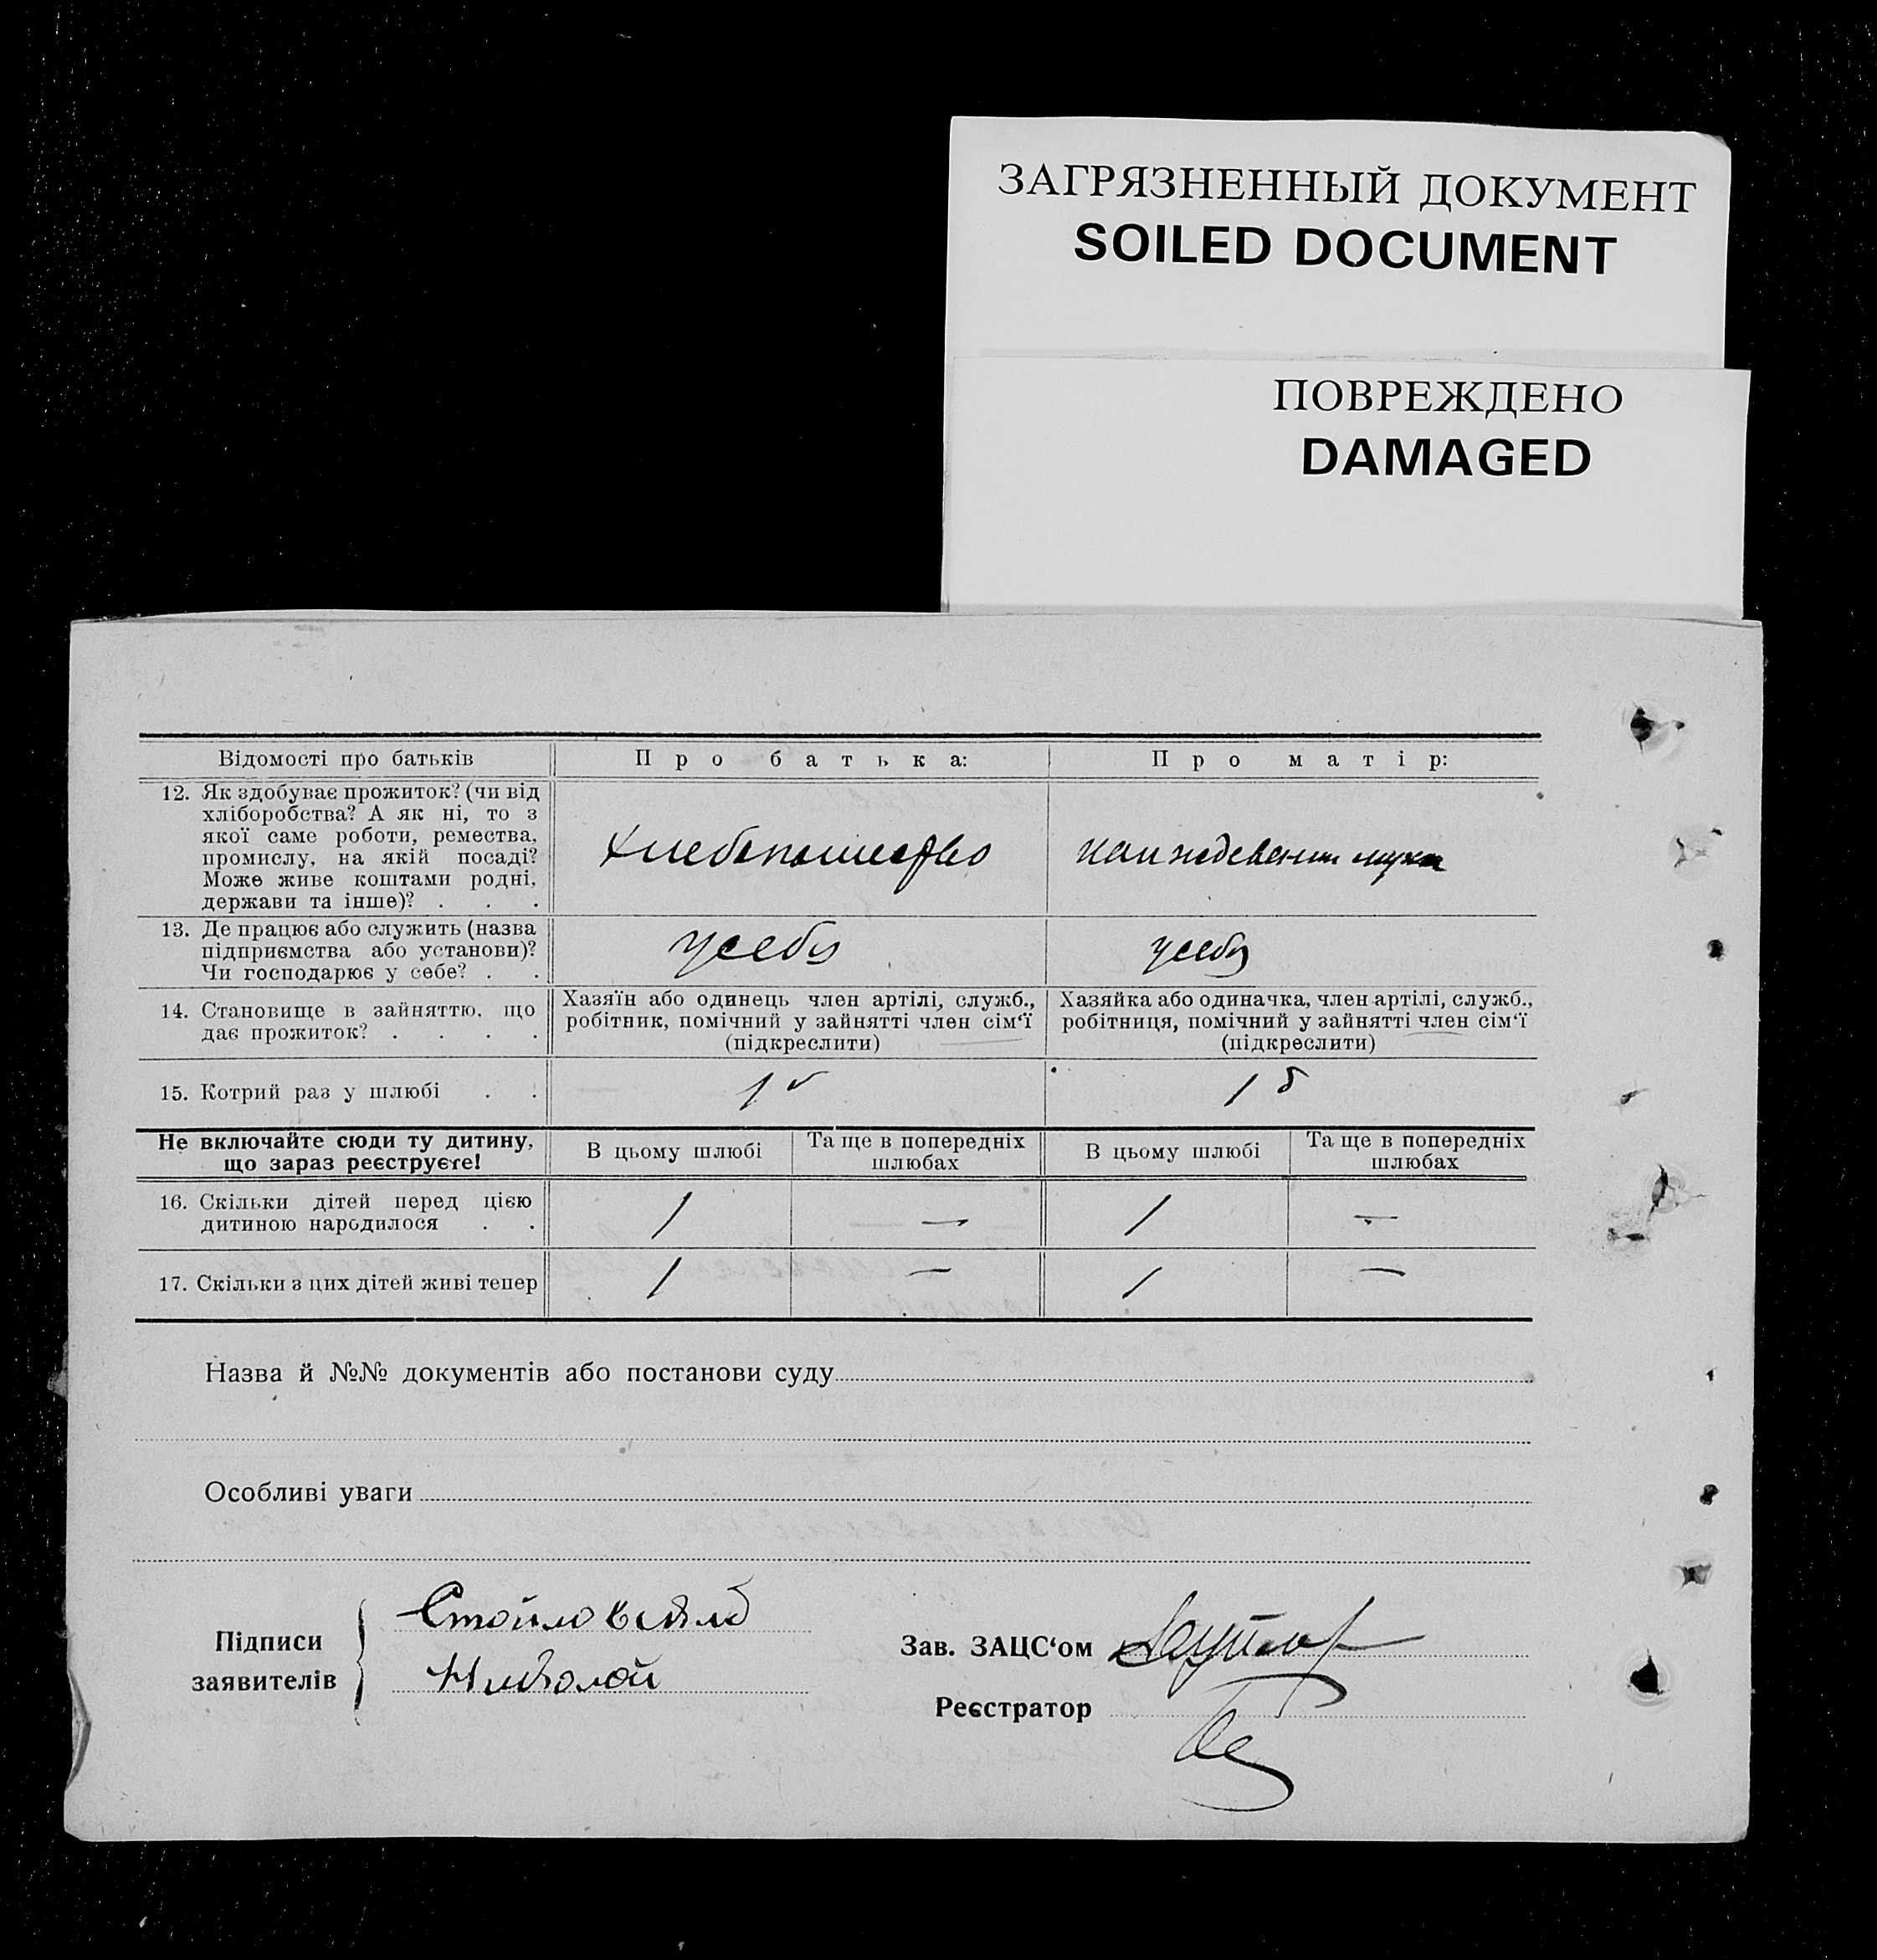 ЗАГРЯЗНЕННЫЙ ДОКУМЕНТ
SOILED DOCUMENT
ПОВРЕЖДЕНО
DAMAGED
Відомості про батьків
Про батька:
Про матір:
12. Як здобуває прожиток? (чи від
хліборобства? А як ні, то з
якої саме роботи, ремества,
промислу, на якій посаді?
Може живе коштами родні,
держави та інше)? . . .
Хлебопашество
на иждевении мужа
13. Де працює або служить (назва
підприємства або установи)?
Чи господарює у себе? . .
у себя
у себя
14. Становище в зайняттю, що
дає прожиток? . . . .
Хазяїн або одинець член артілі, служб.,
робітник, помічний у зайнятті член сім‘ї
(підкреслити)
Хазяйка або одиначка, член артілі, служб.,
робітниця, помічний у зайнятті член сім‘ї
(підкреслити)
15. Котрий раз у шлюбі . .
1
1
Не включайте сюди ту дитину,
що зараз реєструєте!
В цьому шлюбі
Та ще в попередніх
шлюбах
В цьому шлюбі
Та ще в попередніх
шлюбах
16. Скільки дітей перед цією
дитиною народилося . .
1 — 1 —
17. Скільки з цих дітей живі тепер
1 — 1 —
Назва й №№ документів або постанови суду
Особливі уваги
Підписи
заявителів
Николай
Зав. ЗАЦС‘ом
Реєстратор